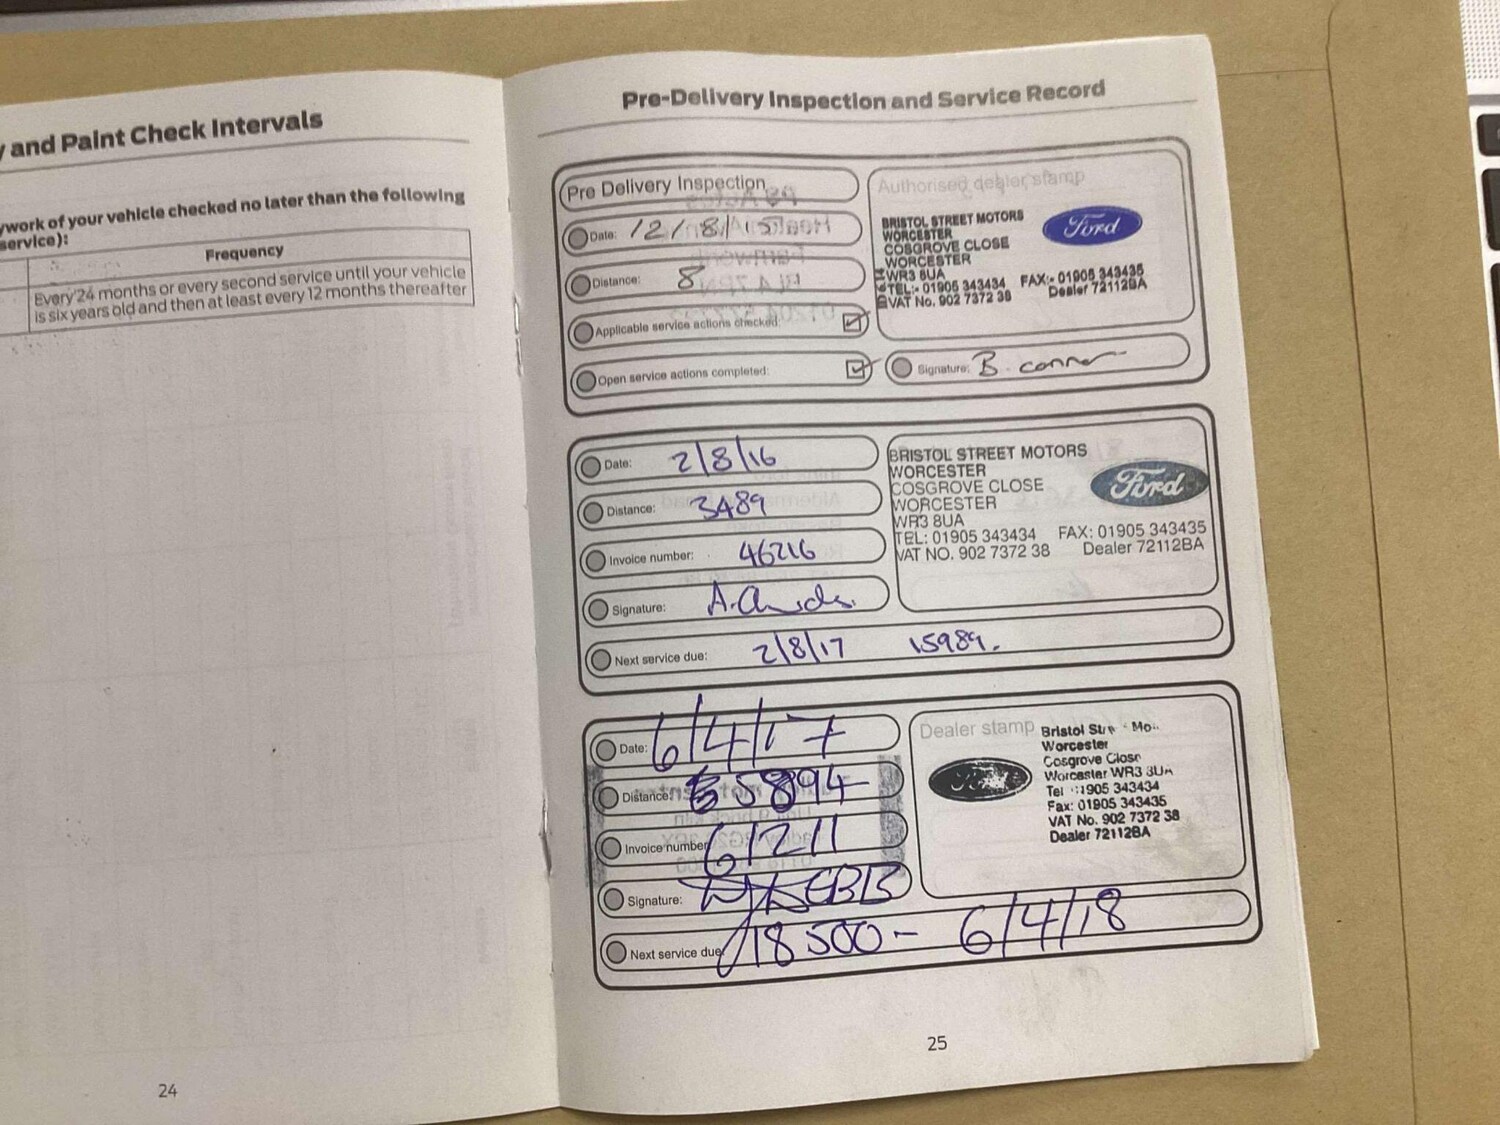 y and Paint Check Intervals
ywork of your vehicle checked no later than the following
service):
Frequency
Every 24 months or every second service until your vehicle
is six years old and then at least every 12 months thereafter
24
Pre-Delivery Inspection and Service Record
Pre Delivery Inspection
Date: 12/8/15
Distance: 8
Applicable service actions checked:
Open service actions completed:
Authorised dealer stamp
BRISTOL STREET MOTORS
WORCESTER
COSGROVE CLOSE
WORCESTER
WR3 8UA
TEL:- 01905 343434 FAX:- 01905 343435
VAT No. 902 7372 38 Dealer 72112BA
Ford
Signature: B. conner
Date: 2/8/16
Distance: 3489
Invoice number: 46216
Signature:
Next service due: 2/8/17 15989.
BRISTOL STREET MOTORS
WORCESTER
COSGROVE CLOSE
WORCESTER
WR3 8UA
TEL: 01905 343434 FAX: 01905 343435
VAT NO. 902 7372 38 Dealer 72112BA
Ford
Date: 6/4/17
Distance: 5894
Invoice number: 61211
Signature:
Next service due: 18500 - 6/4/18
Dealer stamp
Ford
Bristol Mo
Worcester
Cosgrove Close
Worcester WR3 8UA
Tel 01905 343434
Fax: 01905 343435
VAT No. 902 7372 38
Dealer 72112BA
25